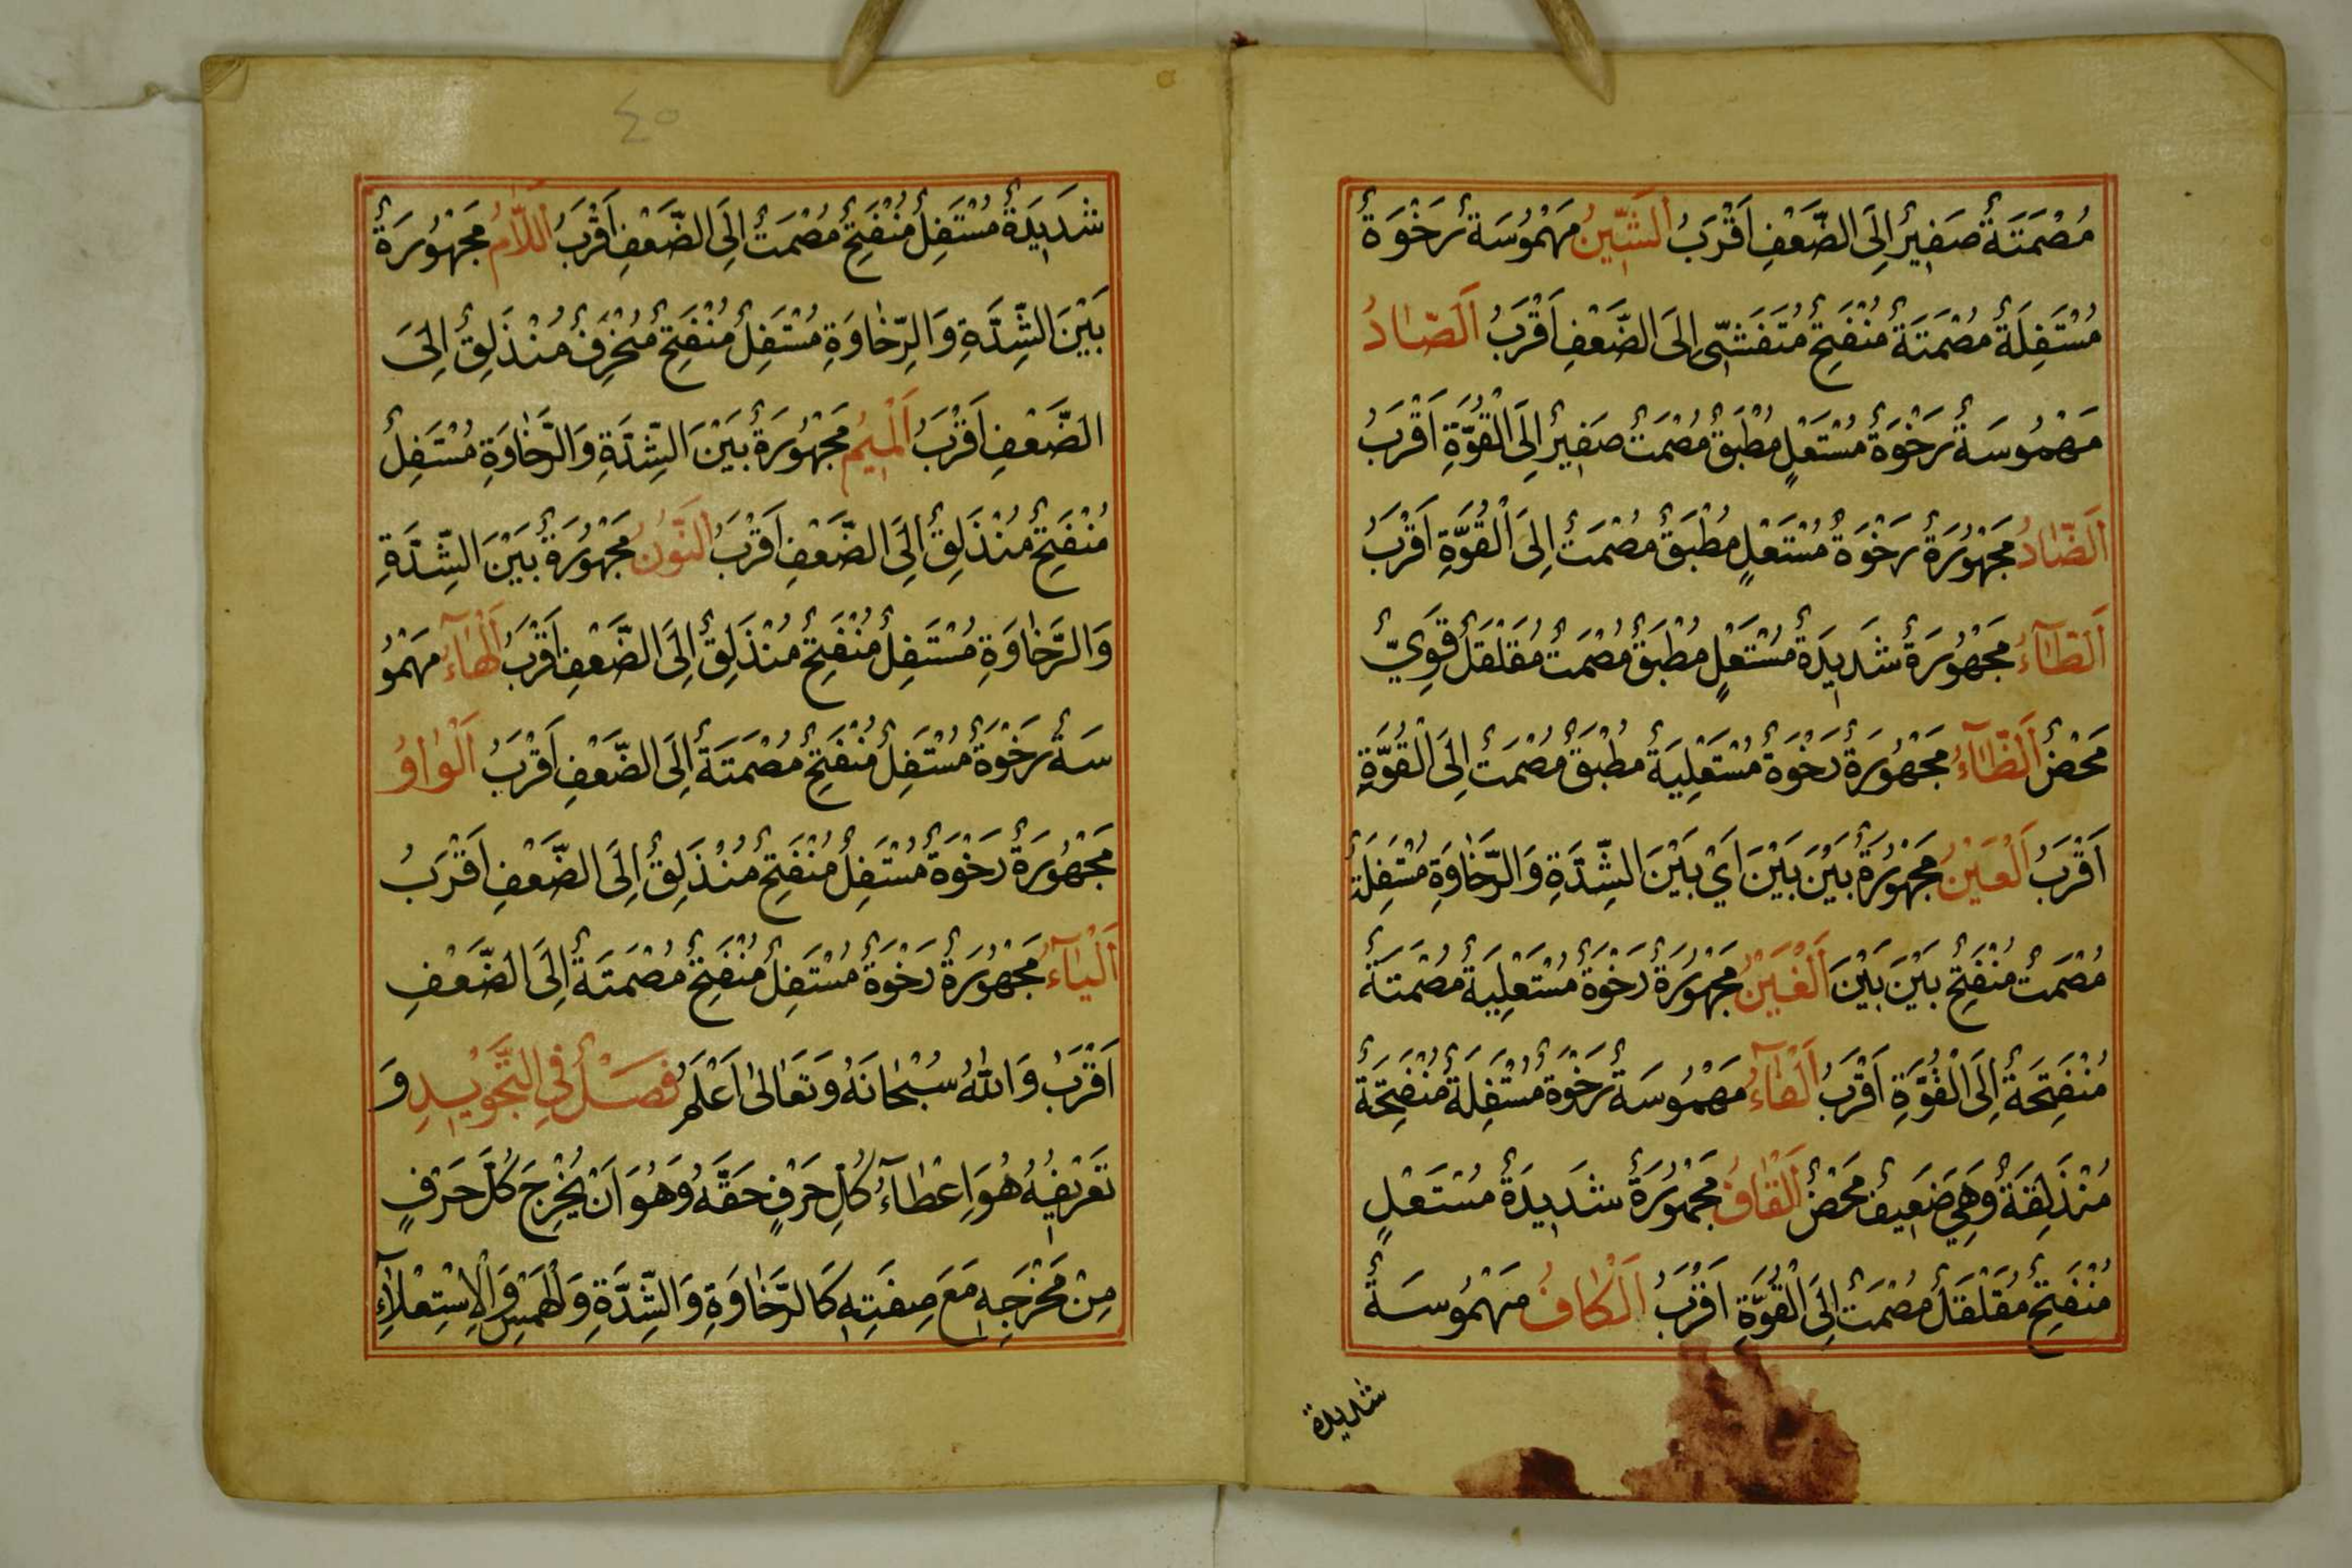 مُصْمَتَةٌ صَفِيرٌ اِلَى الضَّعْفِ اَقْرَبُ اَلشّٖينُ مَهْمُوسَةٌ رَخْوَةٌ
مُسْتَفِلَةٌ مُصْمَتَةٌ مُنْفَتِحٌ مُتَفَشّٖى اِلَى الضَّعْفِ اَقْرَبُ اَلصّٰادُ
مَهْمُوسَةٌ رَخْوَةٌ مُسْتَعْلٍ مُطْبَقٌ مُصْمَتٌ صَفِيرٌ اِلَى الْقُوَّةِ اَقْرَبُ
اَلضّٰادُ مَجْهُورَةٌ رَخْوَةٌ مُسْتَعْلٍ مُطْبَقٌ مُصْمَتٌ اِلَى الْقُوَّةِ اَقْرَبُ
اَلطّٰٓاءُ مَجْهُورَةٌ شَدِيدَةٌ مُسْتَعْلٍ مُطْبَقٌ مُصْمَتٌ مُقَلْقَلٌ قَوِيٌّ
مَحْضٌ اَلظّٰٓاءُ مَجْهُورَةٌ رَخْوَةٌ مُسْتَعْلِيَةٌ مُطْبَقٌ مُصْمَتٌ اِلَى الْقُوَّةِ
اَقْرَبُ اَلْعَيْنُ مَجْهُورَةٌ بَيْنَ بَيْنَ اَيْ بَيْنَ الشِّدَّةِ وَالرَّخٰاوَةِ مُسْتَفِلَةٌ
مُصْمَتٌ مُنْفَتِحٌ بَيْنَ بَيْنَ اَلْغَيْنُ مَجْهُورَةٌ رَخْوَةٌ مُسْتَعْلِيَةٌ مُصْمَتَةٌ
مُنْفَتِحَةٌ اِلَى الْقُوَّةِ اَقْرَبُ اَلْفٰٓاءُ مَهْمُوسَةٌ رَخْوَةٌ مُسْتَفِلَةٌ مُنْفَتِحَةٌ
مُنْذَلِقَةٌ وَهِيَ ضَعِيفٌ مَحْضٌ اَلْقٰافُ مَجْهُورَةٌ شَدِيدَةٌ مُسْتَعْلٍ
مُنْفَتِحٌ مُقَلْقَلٌ مُصْمَتٌ اِلَى الْقُوَّةِ اَقْرَبُ اَلْكٰافُ مَهْمُوسَةٌ
شديدة
٤٠
شَدِيدَةٌ مُسْتَفِلٌ مُنْفَتِحٌ مُصْمَتٌ اِلَى الضَّعْفِ اَقْرَبُ اَللّٰامُ مَجْهُورَةٌ
بَيْنَ الشِّدَّةِ وَالرِّخٰاوَةِ مُسْتَفِلٌ مُنْفَتِحٌ مُنْحَرِفٌ مُنْذَلِقٌ اِلَى
الضَّعْفِ اَقْرَبُ اَلْمٖيمُ مَجْهُورَةٌ بَيْنَ الشِّدَّةِ وَالرَّخٰاوَةِ مُسْتَفِلٌ
مُنْفَتِحٌ مُنْذَلِقٌ اِلَى الضَّعْفِ اَقْرَبُ اَلنُّونُ مَجْهُورَةٌ بَيْنَ الشِّدَّةِ
وَالرَّخٰاوَةِ مُسْتَفِلٌ مُنْفَتِحٌ مُنْذَلِقٌ اِلَى الضَّعْفِ اَقْرَبُ اَلْهٰٓاءُ مَهْمُو
سَةٌ رَخْوَةٌ مُسْتَفِلٌ مُنْفَتِحٌ مُصْمَتَةٌ اِلَى الضَّعْفِ اَقْرَبُ اَلْوٰاوُ
مَجْهُورَةٌ رَخْوَةٌ مُسْتَفِلٌ مُنْفَتِحٌ مُنْذَلِقٌ اِلَى الضَّعْفِ اَقْرَبُ
اَلْيٰٓاءُ مَجْهُورَةٌ رَخْوَةٌ مُسْتَفِلٌ مُنْفَتِحٌ مُصْمَتَةٌ اِلَى الضَّعْفِ
اَقْرَبُ وَاللّٰهُ سُبْحَانَهُ وَتَعَالٰى اَعْلَمُ فَصْلٌ فِي التَّجْوٖيدِ وَ
تَعْرٖيفُهُ هُوَ اِعْطٰٓاءُ كُلِّ حَرْفٍ حَقَّهُ وَهُوَ اَنْ يُخْرِجَ كُلَّ حَرْفٍ
مِنْ مَخْرَجِهٖ مَعَ صِفَتِهٖ كَالرَّخٰاوَةِ وَالشِّدَّةِ وَالْهَمْسِ وَالْاِسْتِعْلٰٓاءِ